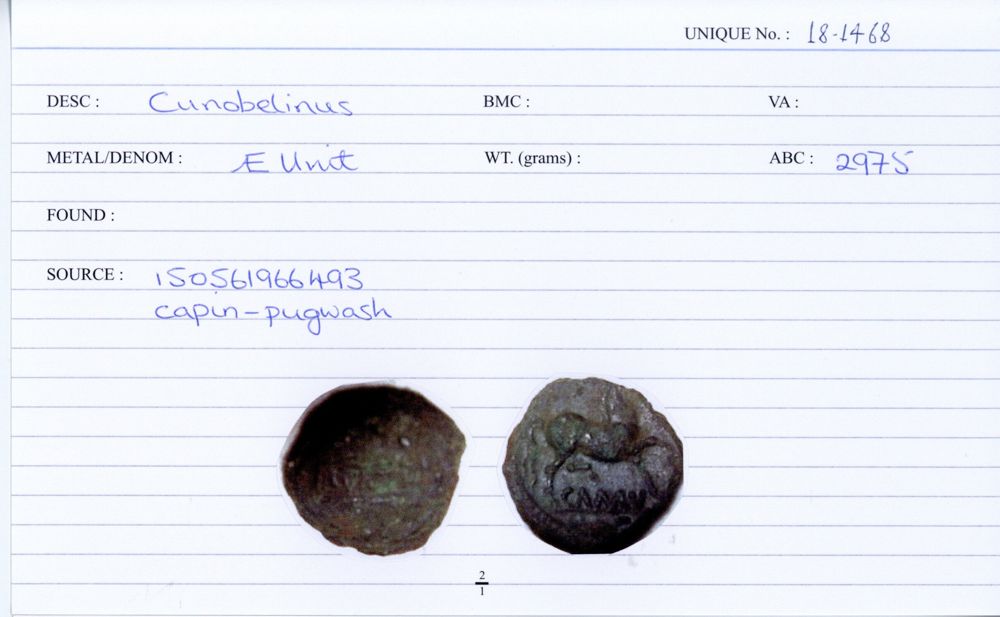 UNIQUE No. : 18-1468
DESC : Cunobelinus BMC : VA :
METAL/DENOM : Æ Unit WT. (grams) : ABC : 2975
FOUND :
SOURCE : 150561966493
capin-pugwash
2
1